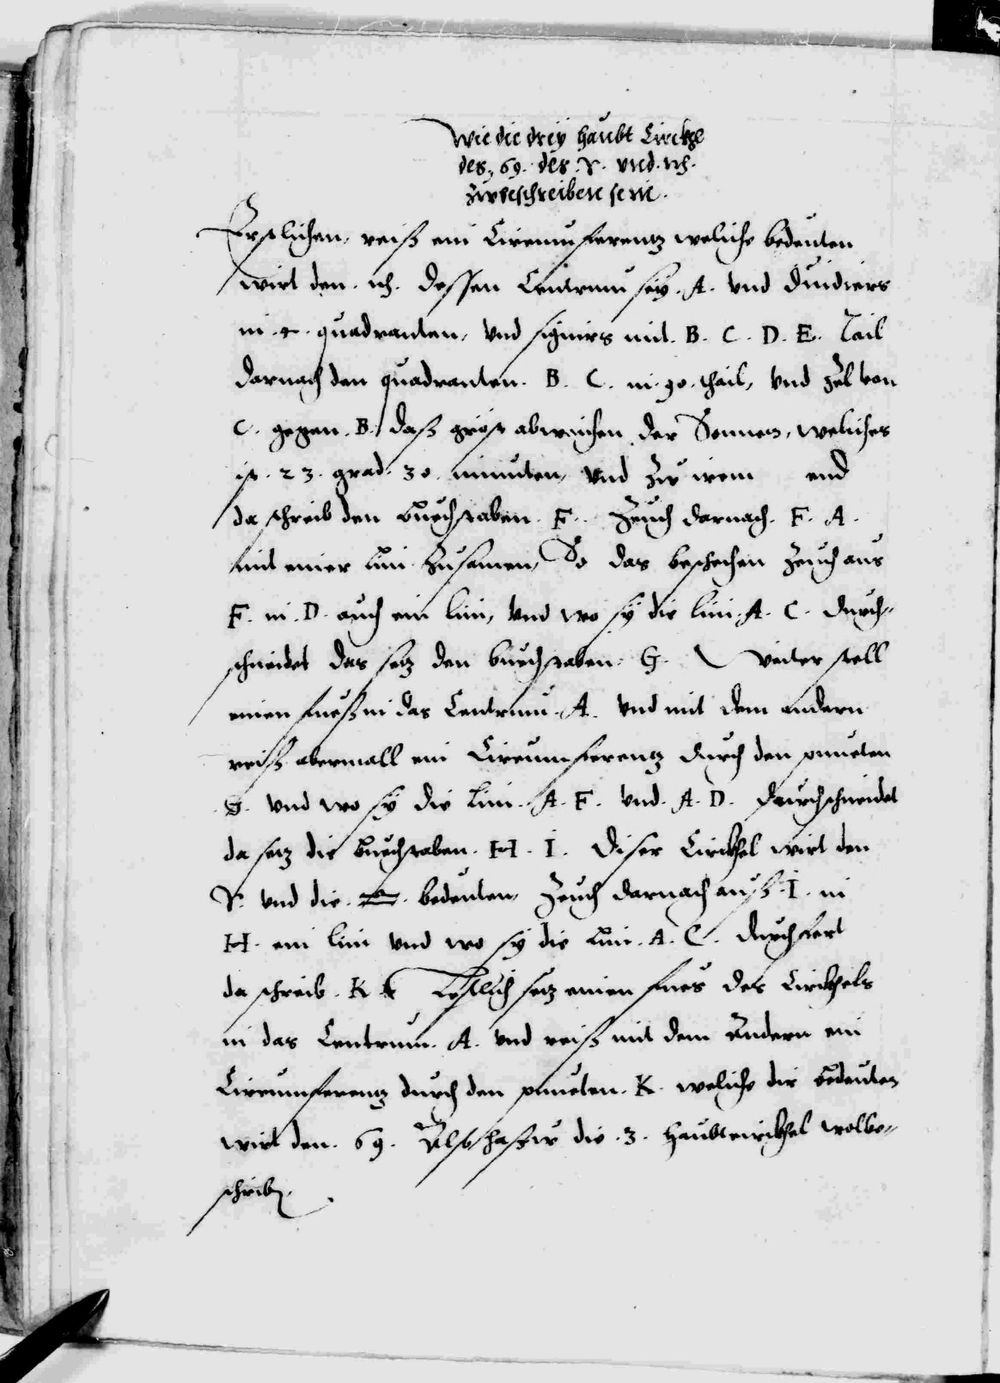 Wie die dreÿ haubt Circkhel
des ♋ des ♈ vnd ♑
zubeschreiben sein.
Erstlichen, reiß ein Circumferentz weliche bedeuten
wirt den ♑ dessen Centrum seÿ A. vnd diuidiers
in 4 quadranten, vnd signirs mit B. C. D. E. Tail
darnach den quadranten B. C. in 90 thail, vnd zel von
C. gegen B. daß gröst abweichen der Sonnen, weliches
ist 23 grad 30 minuten, vnd zu irem end
da schreib den buechstaben F. Zeuch darnach F. A.
mit einer lini zusamen, So das beschechen zeuch aus
F. in D. auch ein lini, vnd wo sÿ die lini A. C. durch-
schneidet das setz den buechstaben G. Weiter stell
einen fueß in das Centrum A. vnd mit dem andern
reiß abermall ein Circumferentz durch den puncten
G. vnd wo sÿ die lini A. F. vnd A. D. durchschneidet
da setz die buechstaben H. I. Diser Circkhel wirt den
♈ vnd die ♎ bedeuten, Zeuch darnach auß I. in
H. ein lini vnd wo sÿ die lini A. C. durchfert
da schreib K. Letzlich setz einen fues des Circkhels
in das Centrum A. vnd reiß mit dem andern ein
Circumferentz durch den puncten K. weliche dir bedeuten
wirt den ♋ Also hastu die 3 haubtcirckhel wolbe-
schriben.